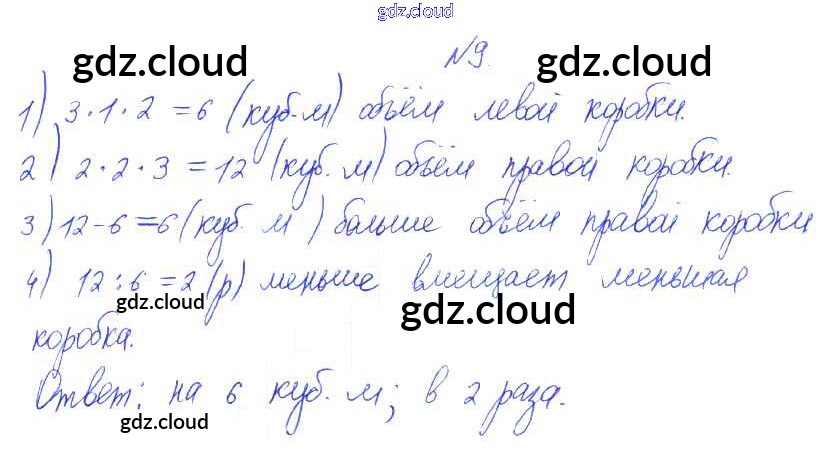 gdz.cloud
№9.
gdz.cloud gdz.cloud
1) 3·1·2=6 (куб.м) объём левой коробки.
2) 2·2·3=12 (куб. м) объём правой коробки.
3) 12-6=6 (куб. м) больше объём правой коробки
4) 12:6=2 (р) меньше вмещает меньшая
gdz.cloud gdz.cloud
коробка.
Ответ: на 6 куб. м; в 2 раза.
gdz.cloud gdz.cloud